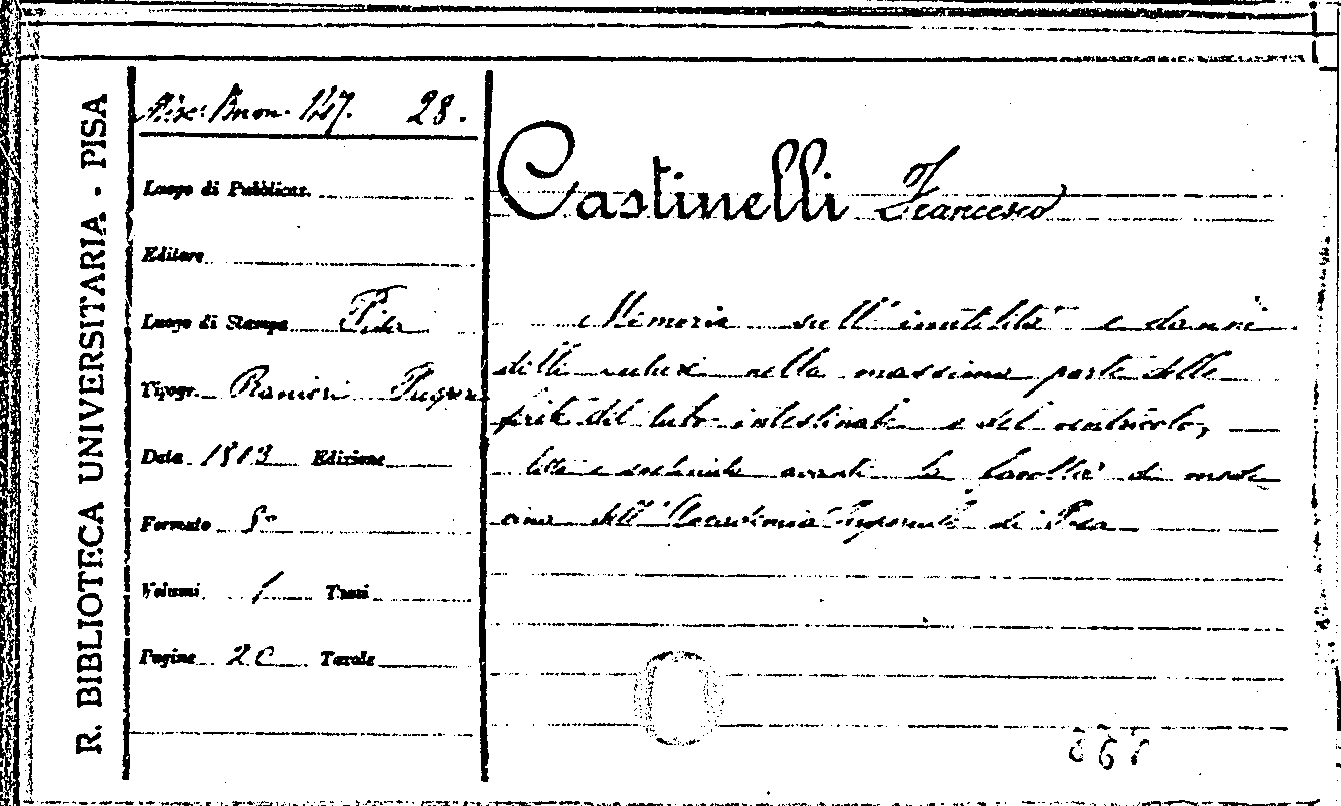 R. BIBLIOTECA UNIVERSITARIA - PISA
Misc. Buon. 147. 28.
Luogo di Pubblicaz.
Editore
Luogo di Stampa Pisa
Tipogr. Ranieri
Data 1813 Edizione
Formato 8°
Volumi 1 Tomi
Pagine 20 Tavole
Castinelli Francesco
Memoria sull'inutilità e danni
delle nella massima parte delle
ferite del tubo intestinale e del ventricolo,
letta e sostenuta avanti la facoltà di medi
cina dell'Accademia Imperiale di Pisa